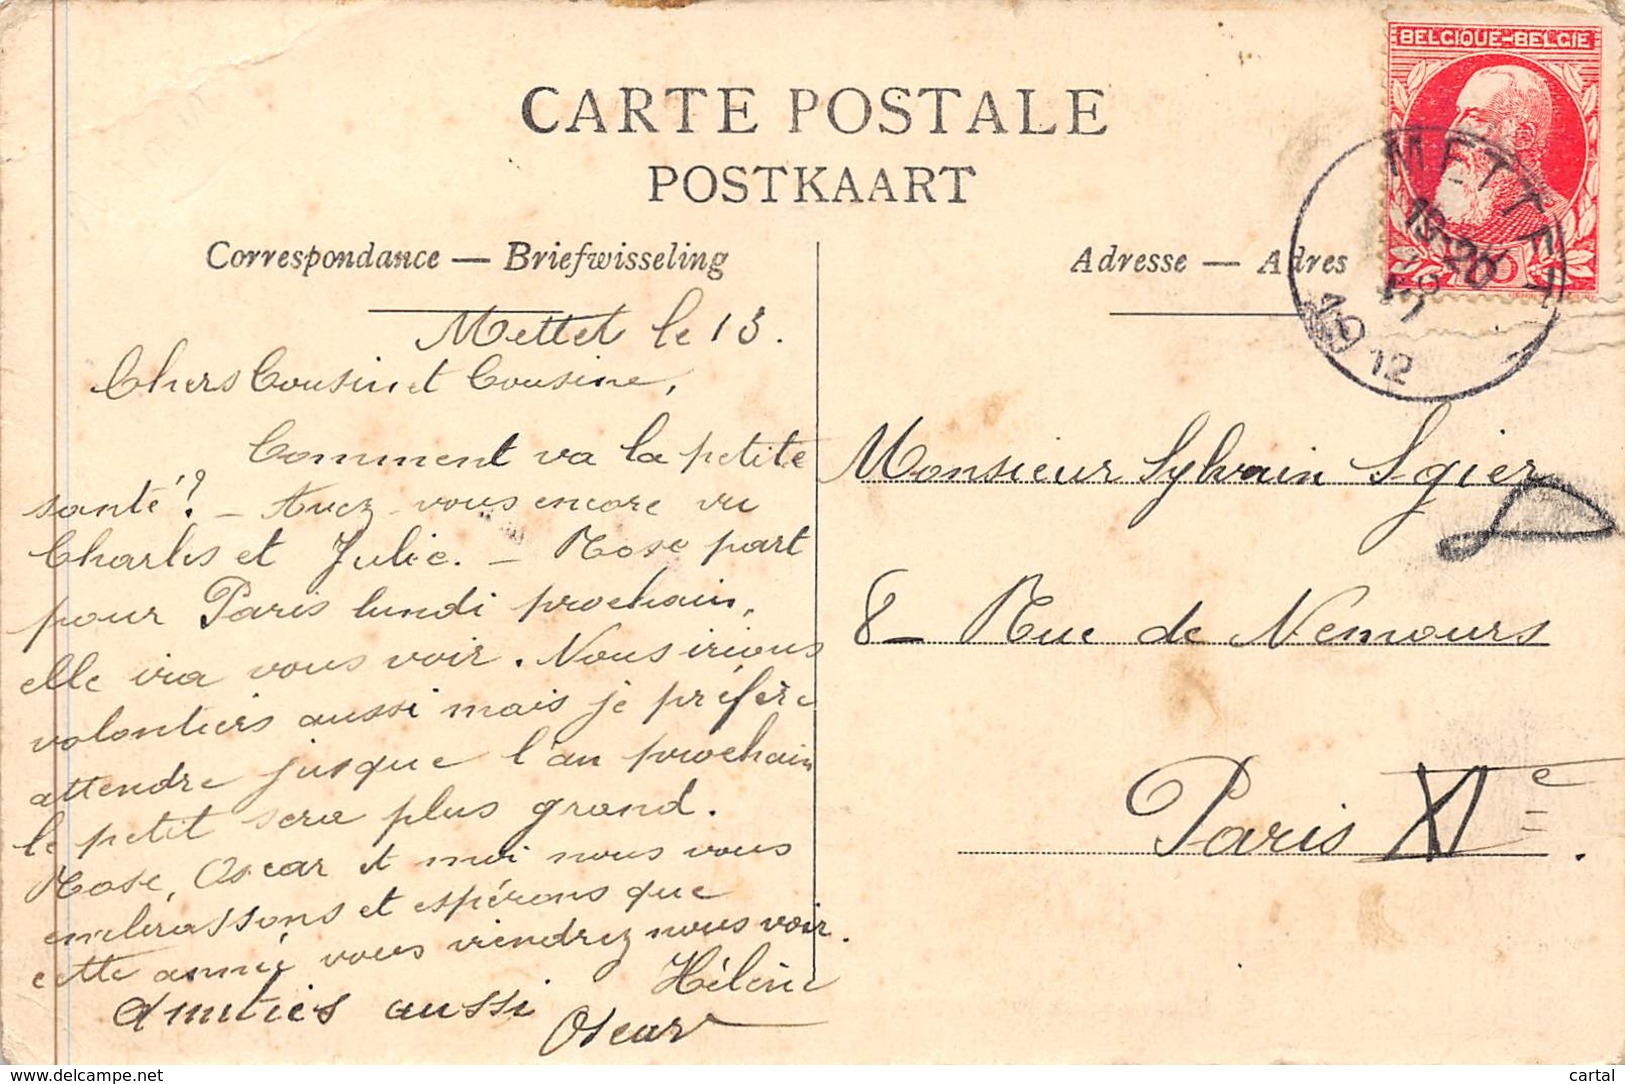 CARTE POSTALE
POSTKAART
Correspondance — Briefwisseling
Adresse — Adres
BELGIQUE-BELGIE
METTET
19-20
1912
Mettet le 13.
Chers Cousin et Cousine,
Comment va la petite
santé? — Avez-vous encore vu
Charles et Julie. — Rose part
pour Paris lundi prochain,
elle ira vous voir. Nous irions
volontiers aussi mais je préfère
attendre jusque l'an prochain
le petit sera plus grand.
Rose, Oscar et moi nous vous
embrassons et espérons que
cette année vous viendrez nous voir.
Hélène
Amitiés aussi
Oscar
Monsieur Sylvain Sgier
8 — Rue de Nemours
Paris XIe.
delcampe.net
cartal